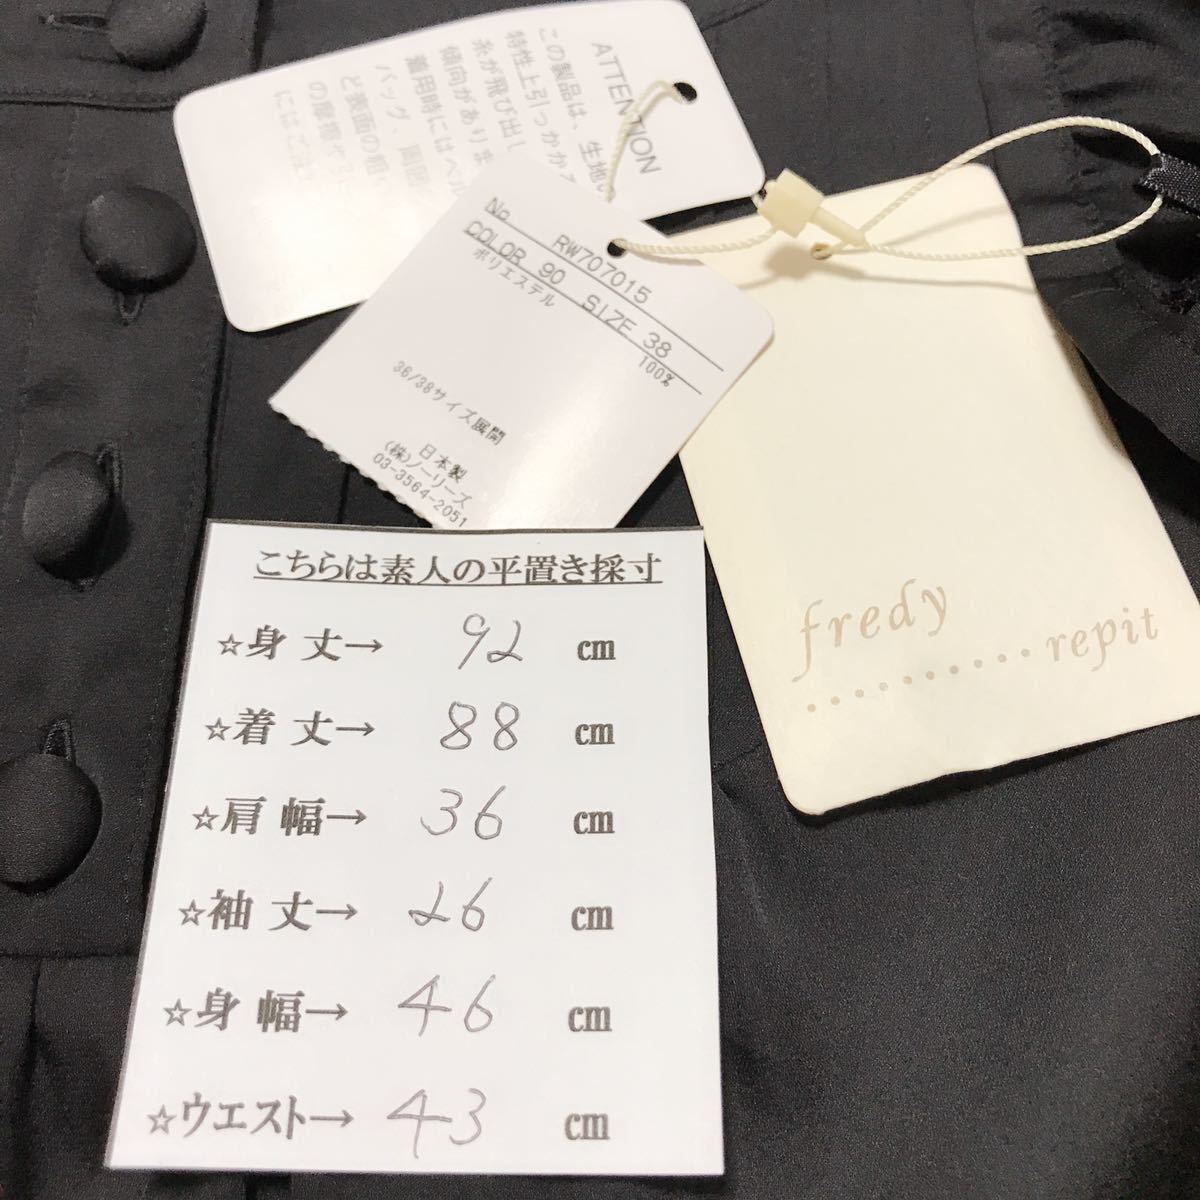 ATTENTION
この製品は、生地の
特性上引っかかる
糸が飛び出し
傾向がありま
着用時にはベル
バッグ
ど表面の粗い
の摩擦や引
にはご注
No. RW707015
COLOR 90 SIZE 38
ポリエステル 100%
36/38サイズ展開
日本製
(株)ノーリーズ
03-3564-2051
fredy
.......... repit
こちらは素人の平置き採寸
☆身 丈→ 92 cm
☆着 丈→ 88 cm
☆肩 幅→ 36 cm
☆袖 丈→ 26 cm
☆身 幅→ 46 cm
☆ウエスト→ 43 cm